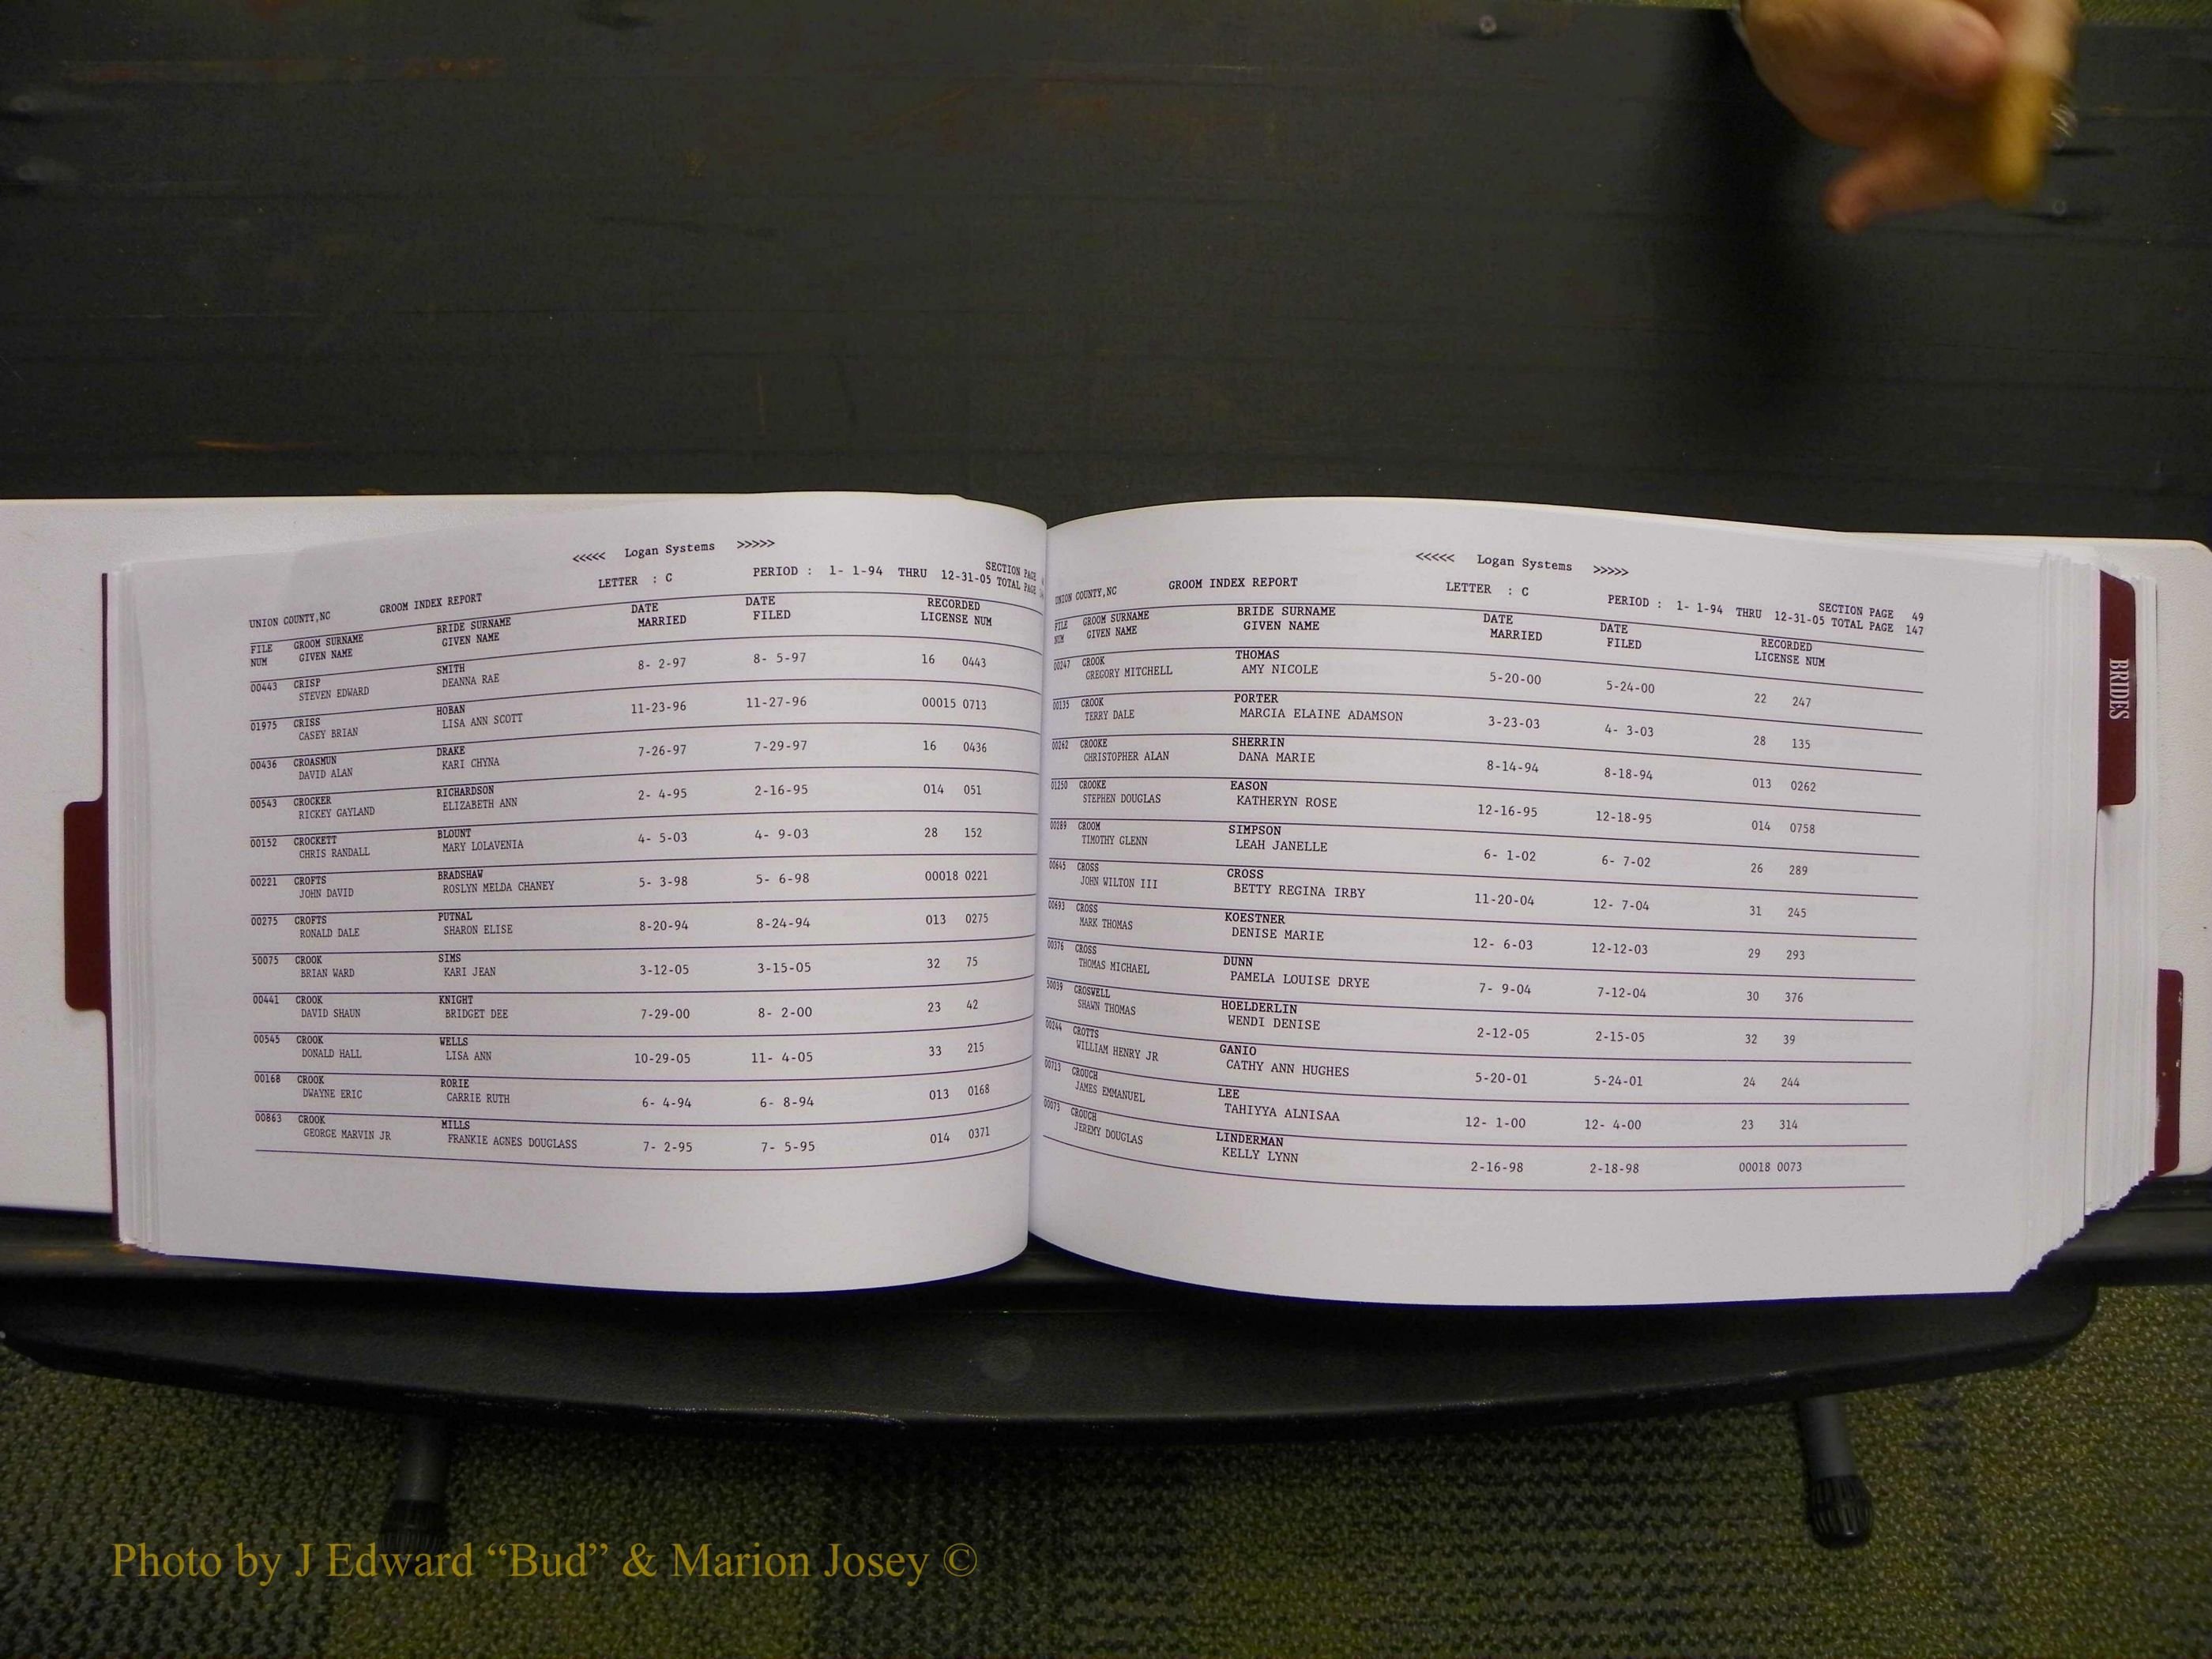 <<<<< Logan Systems >>>>>
LETTER : C PERIOD : 1- 1-94 THRU 12-31-05 SECTION PAGE
TOTAL PAGE
UNION COUNTY,NC GROOM INDEX REPORT
FILE GROOM SURNAME BRIDE SURNAME DATE DATE RECORDED
NUM GIVEN NAME GIVEN NAME MARRIED FILED LICENSE NUM
00443 CRISP SMITH 8- 2-97 8- 5-97 16 0443
STEVEN EDWARD DEANNA RAE
01975 CRISS HOBAN 11-23-96 11-27-96 00015 0713
CASEY BRIAN LISA ANN SCOTT
00436 CROASMUN DRAKE 7-26-97 7-29-97 16 0436
DAVID ALAN KARI CHYNA
00543 CROCKER RICHARDSON 2- 4-95 2-16-95 014 051
RICKEY GAYLAND ELIZABETH ANN
00152 CROCKETT BLOUNT 4- 5-03 4- 9-03 28 152
CHRIS RANDALL MARY LOLAVENIA
00221 CROFTS BRADSHAW 5- 3-98 5- 6-98 00018 0221
JOHN DAVID ROSLYN MELDA CHANEY
00275 CROFTS PUTNAL 8-20-94 8-24-94 013 0275
RONALD DALE SHARON ELISE
50075 CROOK SIMS 3-12-05 3-15-05 32 75
BRIAN WARD KARI JEAN
00441 CROOK KNIGHT 7-29-00 8- 2-00 23 42
DAVID SHAUN BRIDGET DEE
00545 CROOK WELLS 10-29-05 11- 4-05 33 215
DONALD HALL LISA ANN
00168 CROOK RORIE 6- 4-94 6- 8-94 013 0168
DWAYNE ERIC CARRIE RUTH
00863 CROOK MILLS 7- 2-95 7- 5-95 014 0371
GEORGE MARVIN JR FRANKIE AGNES DOUGLASS
<<<<< Logan Systems >>>>>
UNION COUNTY,NC GROOM INDEX REPORT LETTER : C PERIOD : 1- 1-94 THRU 12-31-05 SECTION PAGE 49
TOTAL PAGE 147
FILE GROOM SURNAME BRIDE SURNAME DATE DATE RECORDED
NUM GIVEN NAME GIVEN NAME MARRIED FILED LICENSE NUM
00247 CROOK THOMAS 5-20-00 5-24-00 22 247
GREGORY MITCHELL AMY NICOLE
00135 CROOK PORTER 3-23-03 4- 3-03 28 135
TERRY DALE MARCIA ELAINE ADAMSON
00262 CROOKE SHERRIN 8-14-94 8-18-94 013 0262
CHRISTOPHER ALAN DANA MARIE
01250 CROOKE EASON 12-16-95 12-18-95 014 0758
STEPHEN DOUGLAS KATHERYN ROSE
00289 CROOM SIMPSON 6- 1-02 6- 7-02 26 289
TIMOTHY GLENN LEAH JANELLE
00645 CROSS CROSS 11-20-04 12- 7-04 31 245
JOHN WILTON III BETTY REGINA IRBY
00693 CROSS KOESTNER 12- 6-03 12-12-03 29 293
MARK THOMAS DENISE MARIE
00376 CROSS DUNN 7- 9-04 7-12-04 30 376
THOMAS MICHAEL PAMELA LOUISE DRYE
50039 CROSWELL HOELDERLIN 2-12-05 2-15-05 32 39
SHAWN THOMAS WENDI DENISE
00244 CROTTS GANIO 5-20-01 5-24-01 24 244
WILLIAM HENRY JR CATHY ANN HUGHES
00713 CROUCH LEE 12- 1-00 12- 4-00 23 314
JAMES EMMANUEL TAHIYYA ALNISAA
00073 CROUCH LINDERMAN 2-16-98 2-18-98 00018 0073
JEREMY DOUGLAS KELLY LYNN
BRIDES
Photo by J Edward “Bud” & Marion Josey ©